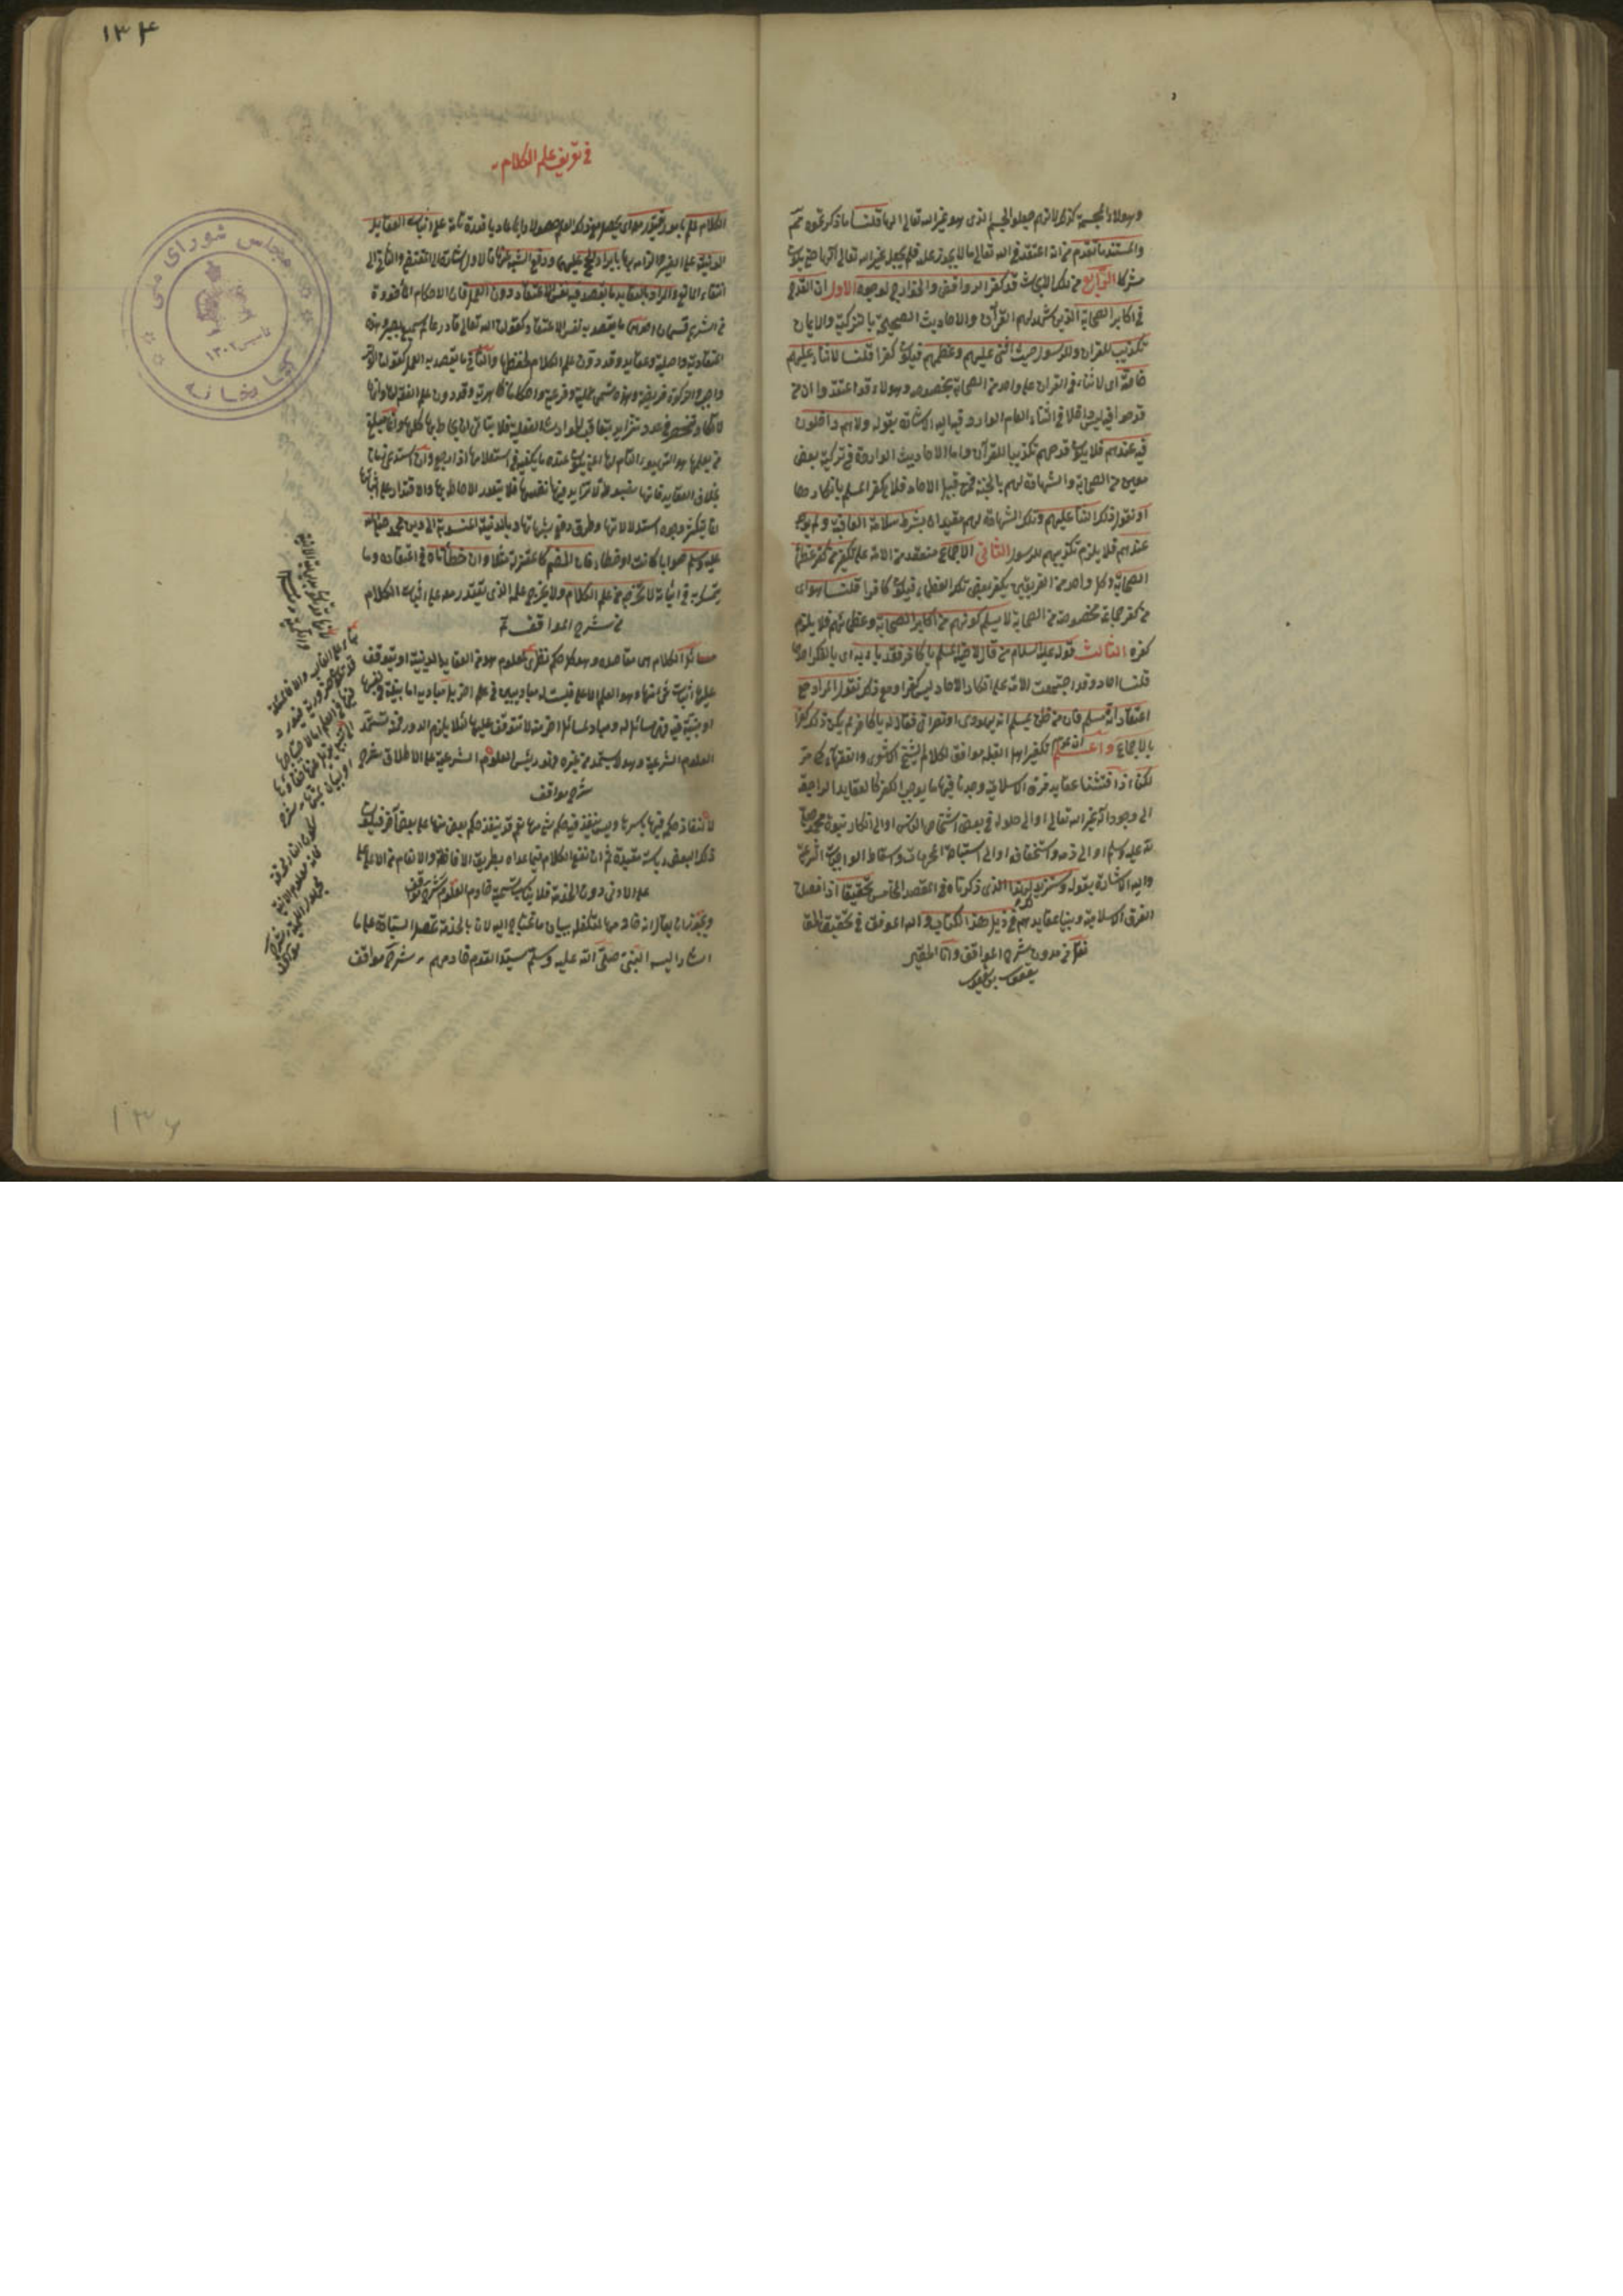 وهؤلاء المجسمة كذلك لانهم جعلوا الجسم الذى هو غير الله تعالى الها قلنا ما ذكرتموه
والمستند ما تقدم من ان اعتقد فى الله تعالى ما لا يجوز عليه فلم يجعل غير الله تعالى الها حتى يكون
مشركا الرابع من تلك الابحاث قد كفر الروافض والخوارج لوجوه الاول ان القدح
فى اكابر الصحابة الذين شهد لهم القرآن والاحاديث الصحيحة بالتزكية والايمان
تكذيب للقرآن وللرسول حيث اثنى عليهم وعظمهم فيكون كفرا قلنا لا ثناء عليهم
خاصة اى لا ثناء فى القرآن على واحد من الصحابة بخصوصه وهؤلاء قد اعتقدوا ان من
قدحوا فيه ليس داخلا فى الثناء العام الوارد فيه واليه الاشارة بقوله ولا هم داخلون
فيه عندهم فلا يكون قدحهم تكذيبا للقرآن واما الاحاديث الواردة فى تزكية بعض
معين من الصحابة والشهادة لهم بالجنة فمن قبيل الآحاد فلا يكفر المسلم بانكارها
او نقول ذلك الثناء عليهم وتلك الشهادة لهم مقيدان بشرط سلامة العاقبة ولم يوجد
عندهم فلا يلزم تكذيبهم للرسول الثانى الاجماع منعقد من الامة على تكفير من كفر عظماء
الصحابة وكل واحد من الفريقين يكفر بعض تلك العظماء فيكون كافرا قلنا هو اى
من كفر جماعة مخصوصة من الصحابة لا يسلم كونهم من اكابر الصحابة وعظمائهم فلا يلزم
كفره الثالث قوله عليه السلام من قال لاخيه المسلم يا كافر فقد باء به اى بالكفر احدهما
قلنا آحاد وقد اجتمعت الامة على ان انكار الآحاد ليس كفرا ومع ذلك نقول المراد مع
اعتقاد انه مسلم فان من ظن بمسلم انه يهودى او نصرانى فقال له يا كافر لم يكن ذلك كفرا
بالاجماع واعلم ان عدم تكفير اهل القبلة موافق لكلام الشيخ الاشعرى والفقهاء كما مر
لكنا اذا فتشنا عقايد فرق الاسلامية وجدنا فيها ما يوجب الكفر كالعقايد الراجعة
الى وجود اله غير الله تعالى او الى حلوله فى بعض اشخاص الناس او الى انكار نبوة محمد صلى
الله عليه وسلم او الى ذمه واستخفافه او الى استباحة المحرمات واسقاط الواجبات الشرعية
واليه الاشارة بقوله وسنزيد لهذا الذى ذكرناه فى المقصد الخامس تحقيقا اذا فصلنا
الفرق الاسلامية وبينا عقايدهم فى ذيل هذا الكتاب والله الموفق فى تحقيق
نقل من مدون شرح المواقف وانا الحقير
١٣٤
فى تعريف علم الكلام
الكلام علم بامور يقتدر معه اى يحصل مع ذلك العلم حصولا دائما عاديا قدرة تامة على اثبات العقايد
الدينية على الغير والزامه بها بايراد الحجج عليها ودفع الشبه عنها فالاول اشارة الى المقتضى والثانى الى
انتفاء المانع والمراد بالعقايد ما يقصد فيه نفس الاعتقاد دون العمل فان الاحكام المأخوذة
من الشرع قسمان احدهما ما يقصد به نفس الاعتقاد كقولنا الله تعالى قادر عالم سميع بصير وهذه
اعتقادية واصلية وعقايد وقد دون علم الكلام لحفظها والثانى ما يقصد به العمل كقولنا الوتر
واجب والزكوة فريضة وهذه تسمى عملية وفرعية واحكاما ظاهرية وقد دون علم الفقه لها وانها
لا تكاد تنحصر فى عدد بل تتزايد بتعاقب الحوادث الفعلية فلا يتأتى ان يحاط بها كلها وانما مبلغ
من يعلمها هو التهيؤ التام لها اعنى يكون عنده ما يكفيه فى استعلامها اذا رجع وان استدعى زمانا
بخلاف العقايد فانها مضبوطة لا تزايد فيها نفسها فلا يتعذر الاحاطة بها والاقتدار على اثباتها
انما يتكثر وجوه استدلالاتها وطرق دفع شبهاتها وبالدينية المنسوبة الى دين محمد صلى الله
عليه وسلم صوابا كانت او خطاء فان الخصم كالمعتزلة مثلا وان خطأناه فى اعتقاده وما
يتمسك به فى اثباته لا نخرجه من علم الكلام ولا يخرج علمه الذى يقتدر معه على اثبات الكلام
من شرح المواقف
مسائل الكلام هى مقاصده وهو كل حكم نظرى لمعلوم هو من العقايد الدينية او يتوقف
عليها اثبات شىء منها وهو العلم الاعلى فليست له مبادى تبين فى علم آخر بل مباديه اما بينة بنفسها
او مبينة فيه فهى مسائل له ومبادى لمسائل اخر منه لا تتوقف عليها لئلا يلزم الدور فمنه تستمد
العلوم الشرعية وهو لا يستمد من غيره فهو رئيس العلوم الشرعية على الاطلاق شرح
شرح مواقف
لانفاذ حكمه فيها باسرها وليس ينفذ فيه حكم شىء منها نعم قد ينفذ حكم بعض منها على بعض آخر فيكون
ذلك البعض رياسة مقيدة ثم ان نفع الكلام فيما عداه بطريق الافاضة والانعام من الاعلى
على الادنى دون الخدمة فلا يناسب تسميته خادم العلوم شرح مواقف
ويجوز ان يقال انه خادمها لتكفله ببيان ما تحتاج اليه لان بالخدمة تحصل السيادة على ما
اشار اليه النبى صلى الله عليه وسلم سيد القوم خادمهم شرح مواقف
مجلس شوراى ملى
كتابخانه
تأسيس ١٣٠٢
١٣٤